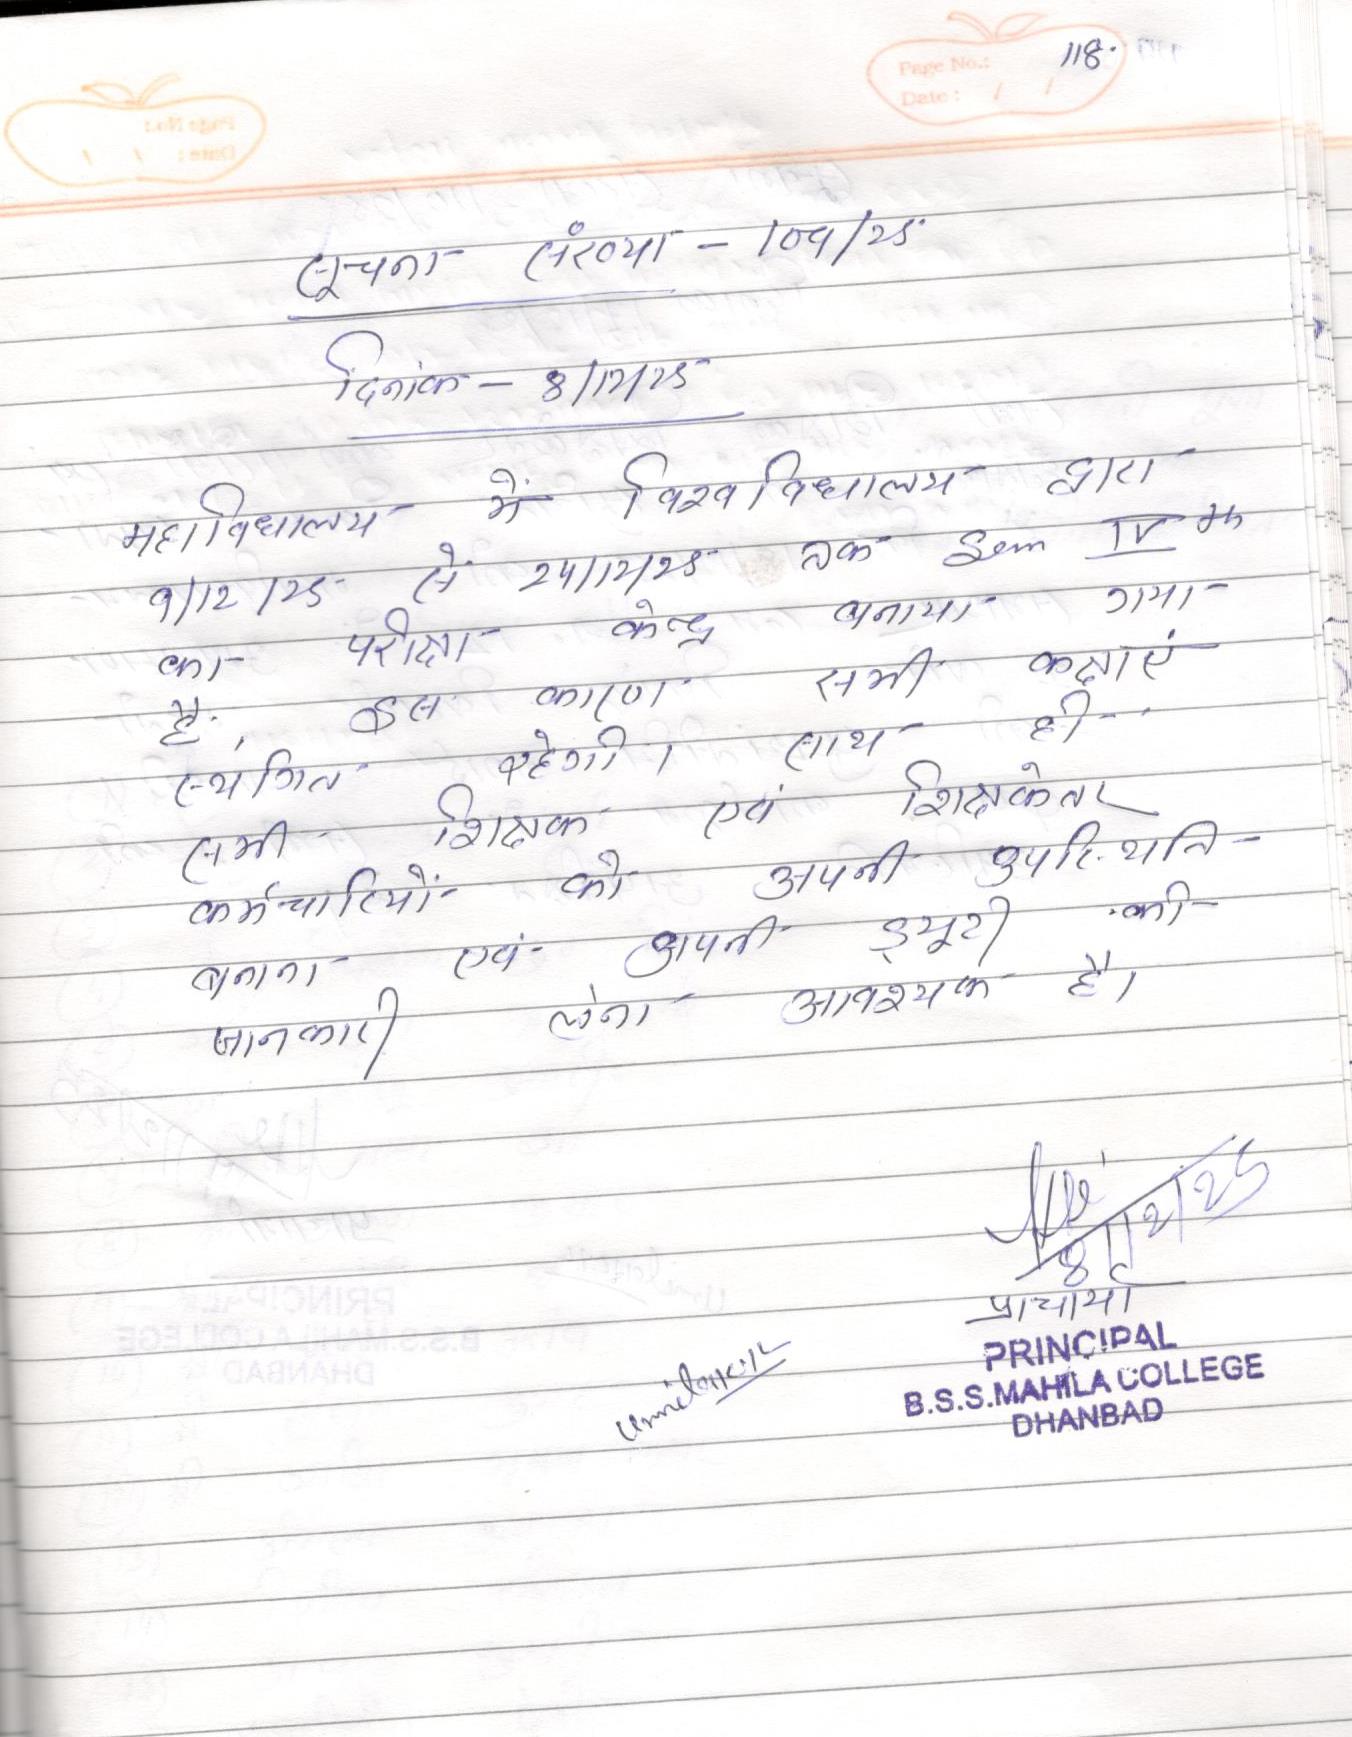 Page No.: 118.
Date : / /
सूचना संख्या - 109/25
दिनांक - 8/12/25
महाविधालय में विश्वविधालय द्वारा
9/12/25 से 24/12/25 तक Sem IV
का परीक्षा केन्द्र बनाया गया
है, इस कारण सभी कक्षाएं
स्थगित रहेगी। साथ ही
सभी शिक्षक एवं शिक्षकेतर
कर्मचारियों को अपनी उपस्थिति
बनाना एवं अपनी ड्यूटी की
जानकारी लेना आवश्यक है।
8/12/25
प्राचार्या
PRINCIPAL
B.S.S.MAHILA COLLEGE
DHANBAD